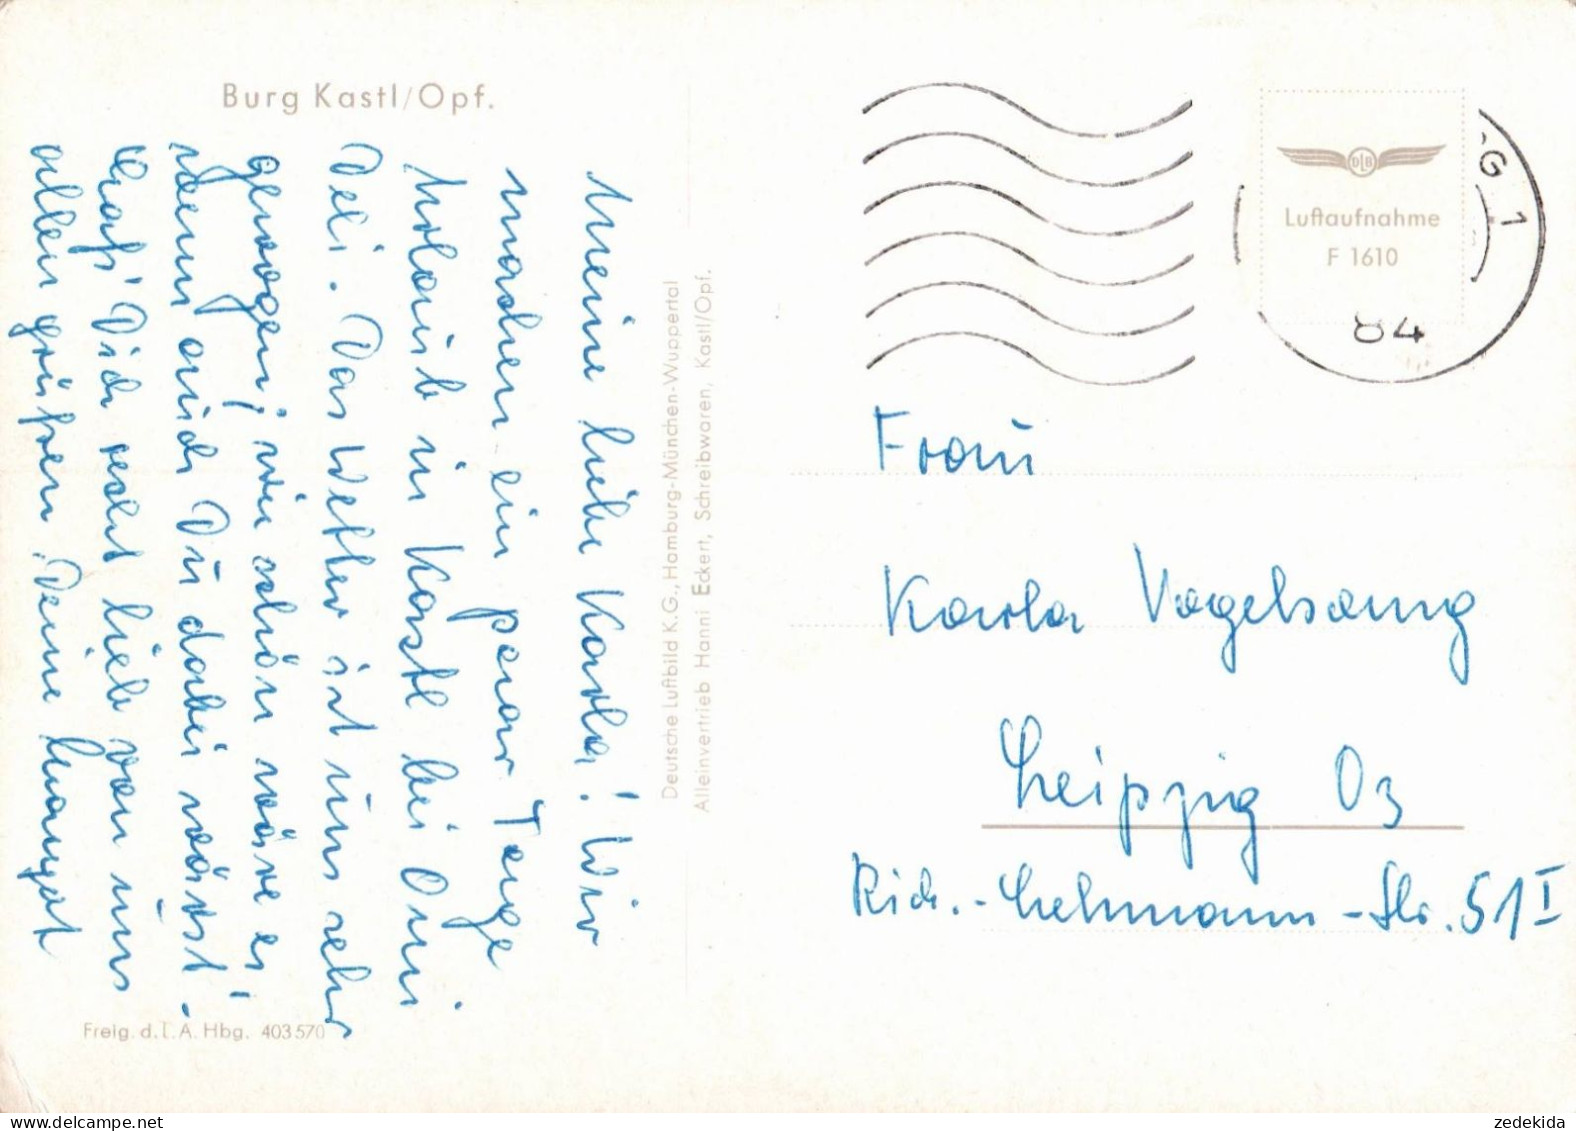 Burg Kastl/Opf.
Meine liebe Karla! Wir
machen ein paar Tage
Urlaub in Kastl bei Omi
Deli. Das Wetter ist uns sehr
gewogen; wie schön wäre es,
wenn auch Du dabei wärst.
Laß' Dich recht lieb von uns
allen grüßen, Deine Margot
Freig. d. L. A. Hbg. 403570
Deutsche Luftbild K.G., Hamburg-München-Wuppertal
Alleinvertrieb Hanni Eckert, Schreibwaren, Kastl/Opf.
DLB
Luftaufnahme
F 1610
G 1
84
Frau
Karla Vogelsang
Leipzig O3
Rich.-Lehmann-Str. 51 I
delcampe.net
zedekida